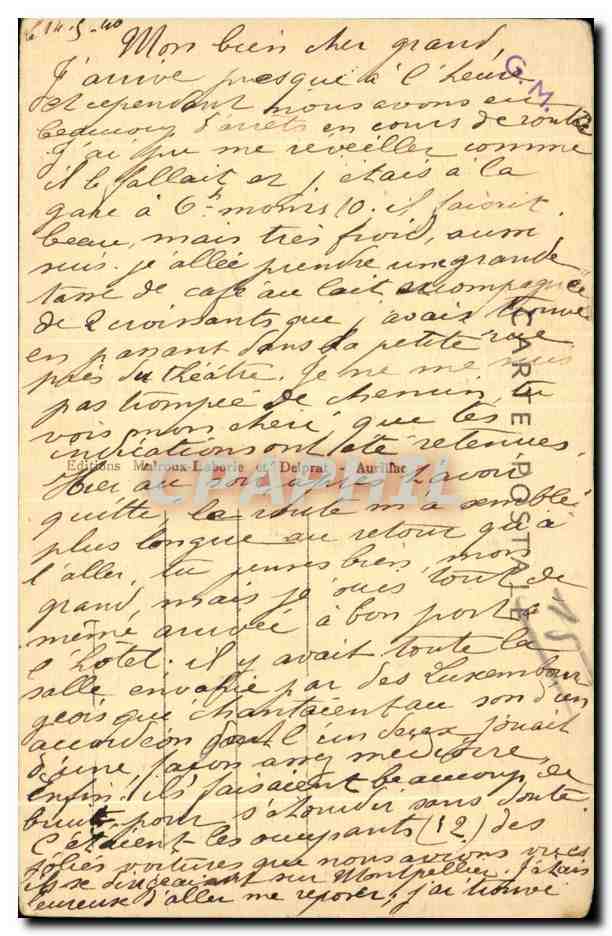 le 14-5-40
Mon bien cher grand,
J'arrive presque à l'heure
et cependant nous avons eu
beaucoup d'arrêts en cours de route
J'ai pu me reveiller comme
il le fallait et j'étais à la
gare à 6h moins 10. il faisait
beau, mais très froid, aussi
suis-je allée prendre une grande
tasse de café au lait accompagnée
de 2 croissants que j'avais trouvé
en passant dans la petite rue
près du théâtre. Je ne me suis
pas trompée de chemin, tu
vois mon chéri que tes
indications ont été retenues.
Editions Malroux-Laborie et Delprat - Aurillac
Hier au soir après t'avoir
quitté la route m'a semblé
plus longue au retour qu'à
l'aller, tu penses bien, mon
grand, mais je suis tout de
même arrivée à bon port à
l'hôtel. il y avait toute la
salle envahie par des Luxembour
geois qui chantaient au son d'un
accordéon dont l'un deux jouait
d'une façon assez médiocre,
enfin ils faisaient beaucoup de
bruit pour s'étourdir sans doute.
C'étaient les occupants (12) des
jolies voitures que nous avions vues
ils se dirigeaient sur Montpellier. J'étais
heureuse d'aller me reposer, j'ai trouvé
G.M.
CARTE POSTALE
15
CPAPHIL